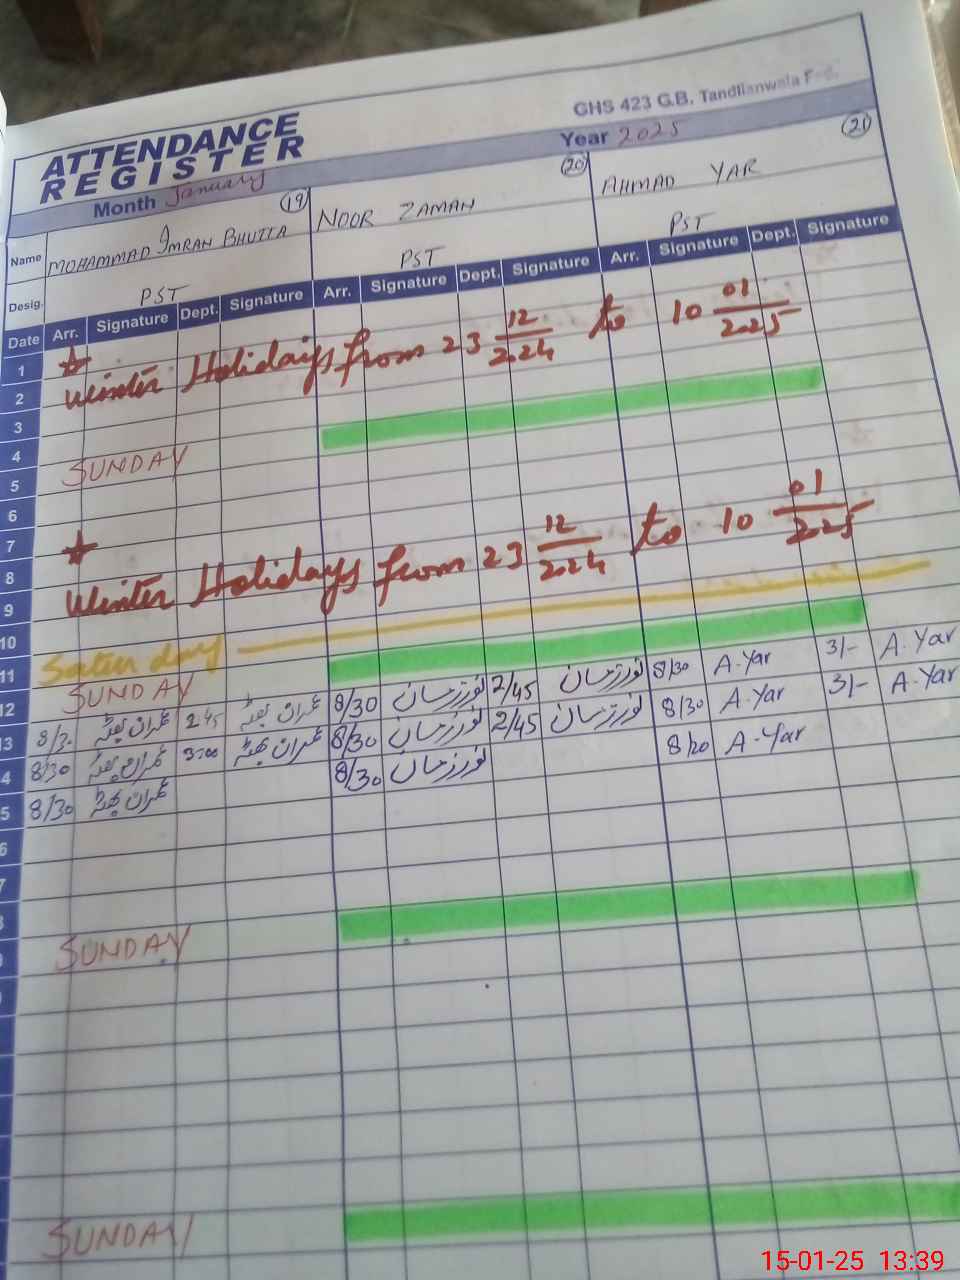 GHS 423 G.B. Tandlianwala
ATTENDANCE
REGISTER
Month January
Year 2025
(19) (20) (21)
Name MOHAMMAD IMRAN BHUTTA NOOR ZAMAN AHMAD YAR
Desig. PST PST PST
Date Arr. Signature Dept. Signature Arr. Signature Dept. Signature Arr. Signature Dept. Signature
1
Winter Holidays from 23 12/2024 to 10 01/2025
2
3
4
SUNDAY
5
6
7
8
Winter Holidays from 23 12/2024 to 10 01/2025
9
10
Saturday
11
SUNDAY
12
8/30 عمران بھٹہ 2 45 عمران بھٹہ 8/30 2/45 8/30 A.Yar 3/- A.Yar
3
8/30 عمران بھٹہ 3:00 عمران بھٹہ 8/30 2/45 8/30 A.Yar 3/- A.Yar
4
8/30 عمران بھٹہ 8/30 8/20 A.Yar
5
6
7
SUNDAY
SUNDAY
15-01-25 13:39